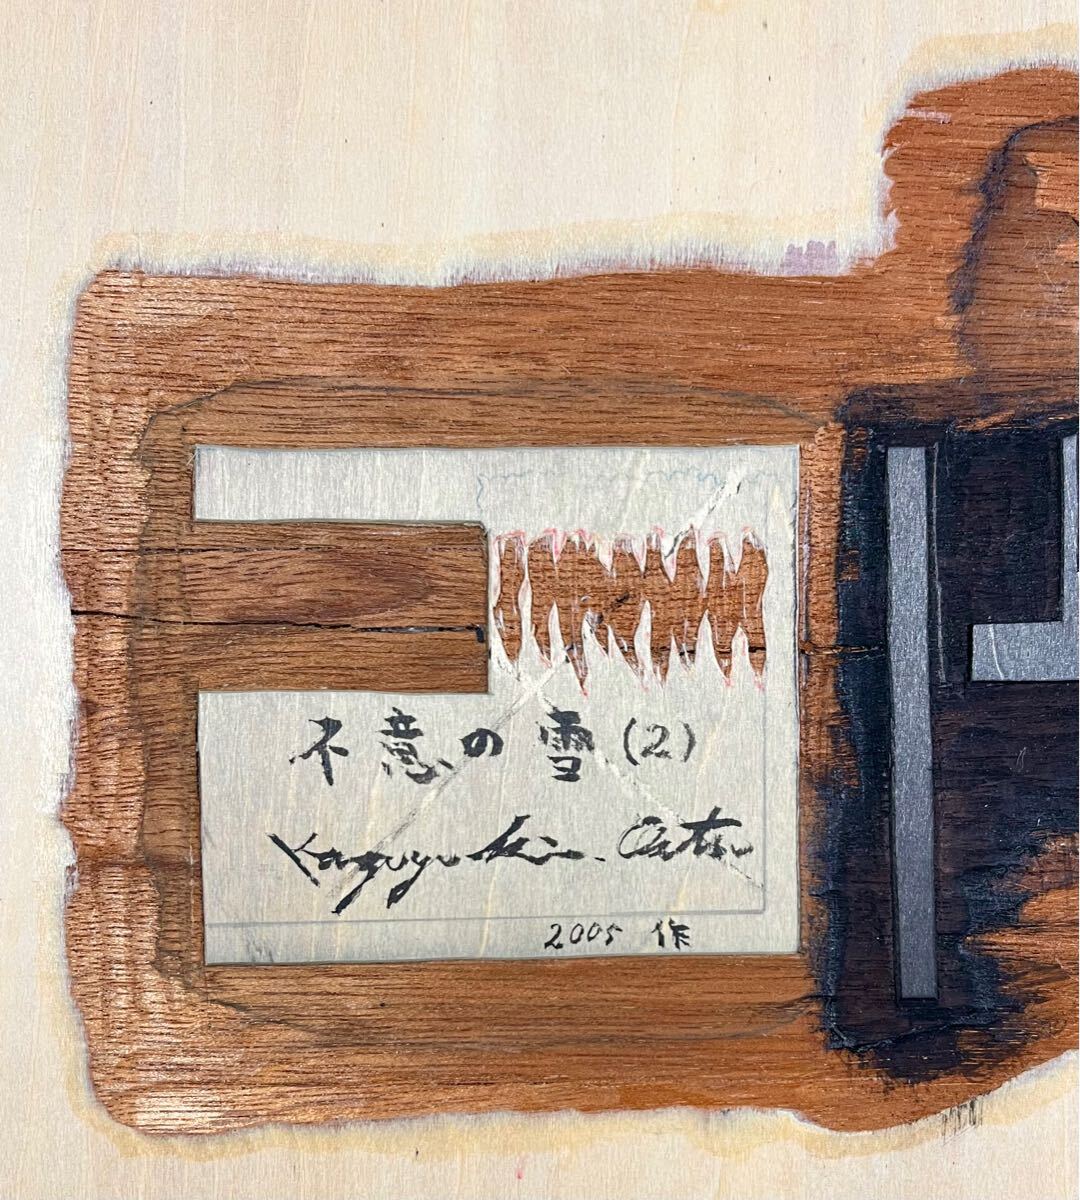 不意の雪(2)
Kazuyuki. Ohtsu
2005 作